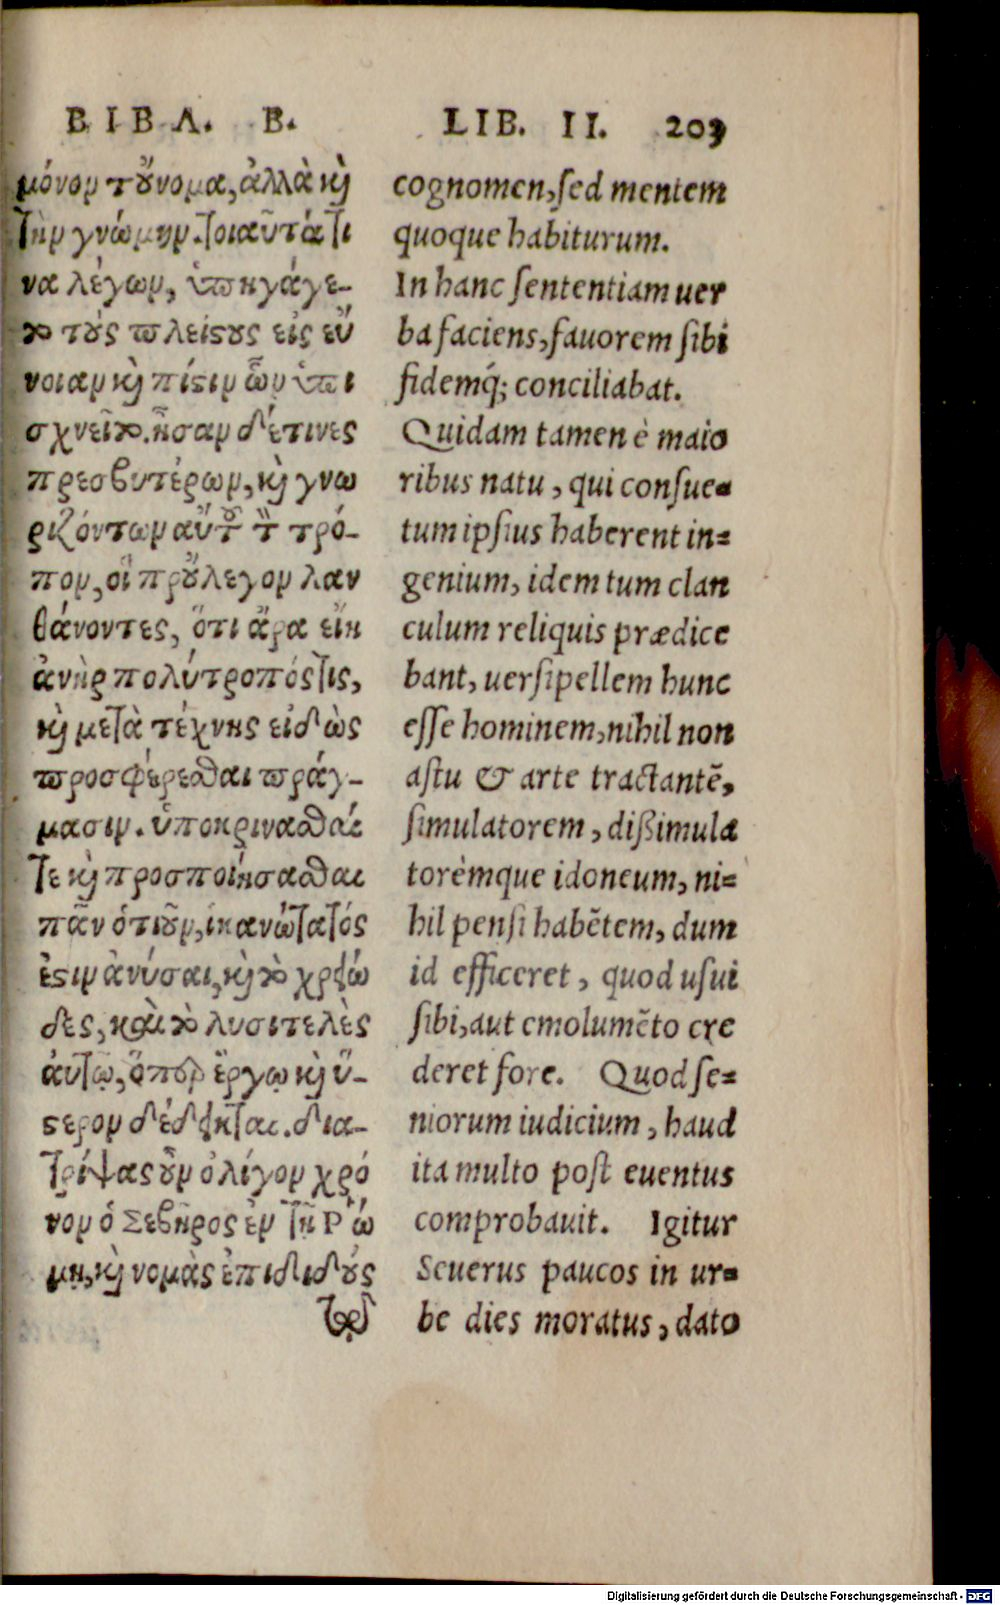 ΒΙΒΛ. Β.
μόνον τοὔνομα, ἀλλὰ καὶ
τὴν γνώμην. τοιαῦτά τι
να λέγων, ὑπηγάγε-
το τοὺς πλείστους εἰς εὔ
νοιαν καὶ πίστιν ὧν ὑπι
σχνεῖτο. ἦσαν δέ τινες
πρεσβυτέρων, καὶ γνω
ριζόντων αὐτοῦ τὸν τρό-
πον, οἳ προὔλεγον λαν
θάνοντες, ὅτι ἄρα εἴη
ἀνὴρ πολύτροπός τις,
καὶ μετὰ τέχνης εἰδὼς
προσφέρεσθαι πράγ-
μασιν. ὑποκρίνασθαί
τε καὶ προσποιήσασθαι
πᾶν ὁτιοῦν, ἱκανώτατός
ἐστιν ἀνύσαι, καὶ τὸ χρειῶ
δες, καὶ τὸ λυσιτελὲς
αὐτῷ, ὅπερ ἔργῳ καὶ ὕ-
στερον δέδεικται. δια-
τρίψας οὖν ὀλίγον χρό
νον ὁ Σεβῆρος ἐν τῇ Ῥώ
μῃ, καὶ νομὰς ἐπιδιδοὺς
LIB. II. 203
cognomen, sed mentem
quoque habiturum.
In hanc sententiam uer
ba faciens, fauorem sibi
fidemq́; conciliabat.
Quidam tamen è maio
ribus natu, qui consue=
tum ipsius haberent in=
genium, idem tum clan
culum reliquis prædice
bant, uersipellem hunc
esse hominem, nihil non
astu & arte tractantē,
simulatorem, dißimula
torémque idoneum, ni=
hil pensi habētem, dum
id efficeret, quod usui
sibi, aut emolumēto cre
deret fore. Quod se=
niorum iudicium, haud
ita multo post euentus
comprobauit. Igitur
Seuerus paucos in ur=
be dies moratus, dato
Digitalisierung gefördert durch die Deutsche Forschungsgemeinschaft - DFG